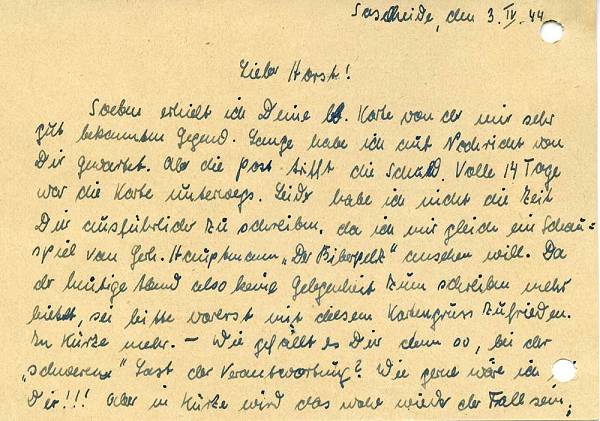 den 3. IV. 44
Lieber Horst!
Soeben erhielt ich Deine lb. Karte von der mir sehr
gut bekannten Gegend. Lange habe ich auf Nachricht von
Dir gewartet. Aber die Post trifft die Schuld. Volle 14 Tage
war die Karte unterwegs. Leider habe ich nicht die Zeit
Dir ausführlicher zu schreiben, da ich mir gleich ein Schau=
spiel von Gerh. Hauptmann „Der Biberpelz" ansehen will. Da
der heutige Abend also keine Gelegenheit zum schreiben mehr
bietet, sei bitte vorerst mit diesem Kartengruss zufrieden.
In Kürze mehr. – Wie gefällt es Dir denn so, bei der
„schweren" Last der Verantwortung? Wie gerne wäre ich
Dir!!! Aber in Kürze wird das wohl wieder der Fall sein,